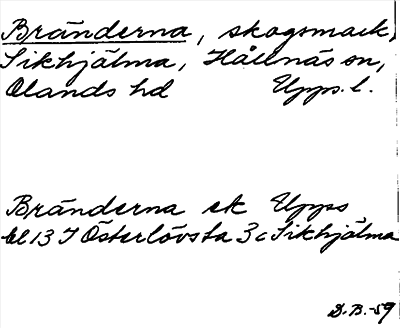 Bränderna, skogsmark,
Sikhjälma, Hållnäs sn,
Olands hd Upps. l.
Bränderna ek Upps
bl 13 I Österlövsta 3c Sikhjälma
D.B.-59